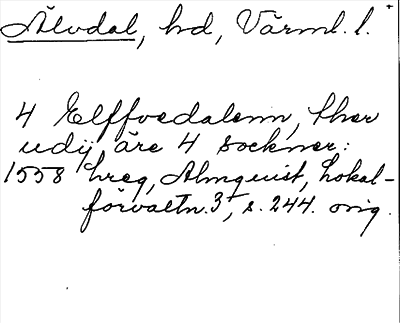 Älvdal, hd, Värml. l.
4 Elffvedalenn, ther
udij äre 4 sockner:
1558 hreg, Almquist, Lokal-
förvaltn. 3, s. 244. orig.